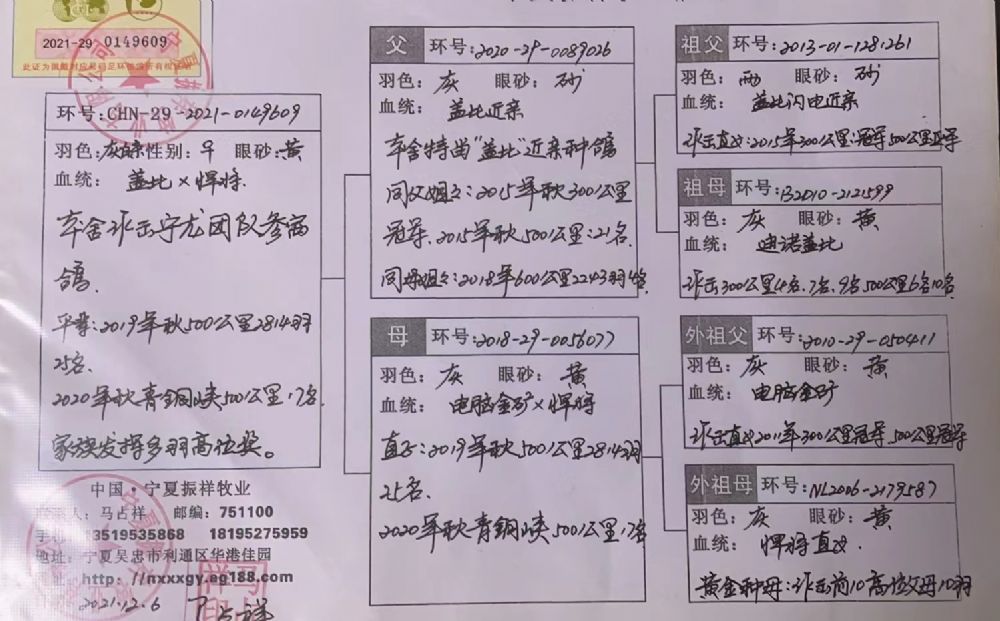 2021-29 0149609
此证为佩戴对应号码足环信鸽所有权证明
环号:CHN-29-2021-0149609
羽色:灰 性别:♀ 眼砂:黄
血统: 盖比×悍将.
羽
鸽.
平辈:2019年秋500公里2814羽
25名.
2020年秋青铜峡500公里:7名
家族发挥多羽高位奖。
中国·宁夏振祥牧业
联系人:马占祥 邮编:751100
手机:13519535868 18195275959
地址:宁夏吴忠市利通区华港佳园
网址:http://nxxxgy.ag188.com
2021.12.6
父 环号:2020-29-0089026
羽色: 灰 眼砂: 砂
血统: 盖比近亲
"盖比"近亲种鸽
同父姐姐:2015年秋300公里
冠军、2015年秋500公里:21名.
同母姐姐:2018年600公里2243羽4名
母 环号:2018-29-0056077
羽色: 灰 眼砂: 黄
血统: 电脑金矿×悍将
直子:2019年秋500公里2814羽
25名.
2020年秋青铜峡500公里:7名
祖父 环号:2013-01-1281261
羽色: 雨 眼砂: 砂
血统: 盖比闪电近亲
作出直女:2015年300公里:冠军500公里亚军
祖母 环号:B2010-2121599
羽色: 灰 眼砂: 黄
血统: 迪诺盖比
作出300公里4名、7名、9名500公里6名10名
外祖父 环号:2010-29-0504411
羽色: 灰 眼砂: 黄
血统: 电脑金矿
作出直女2011年300公里冠军、500公里冠军
外祖母 环号:NL2006-2179587
羽色: 灰 眼砂: 黄
血统: 悍将直女.
黄金种母:作出前10高位父母10羽